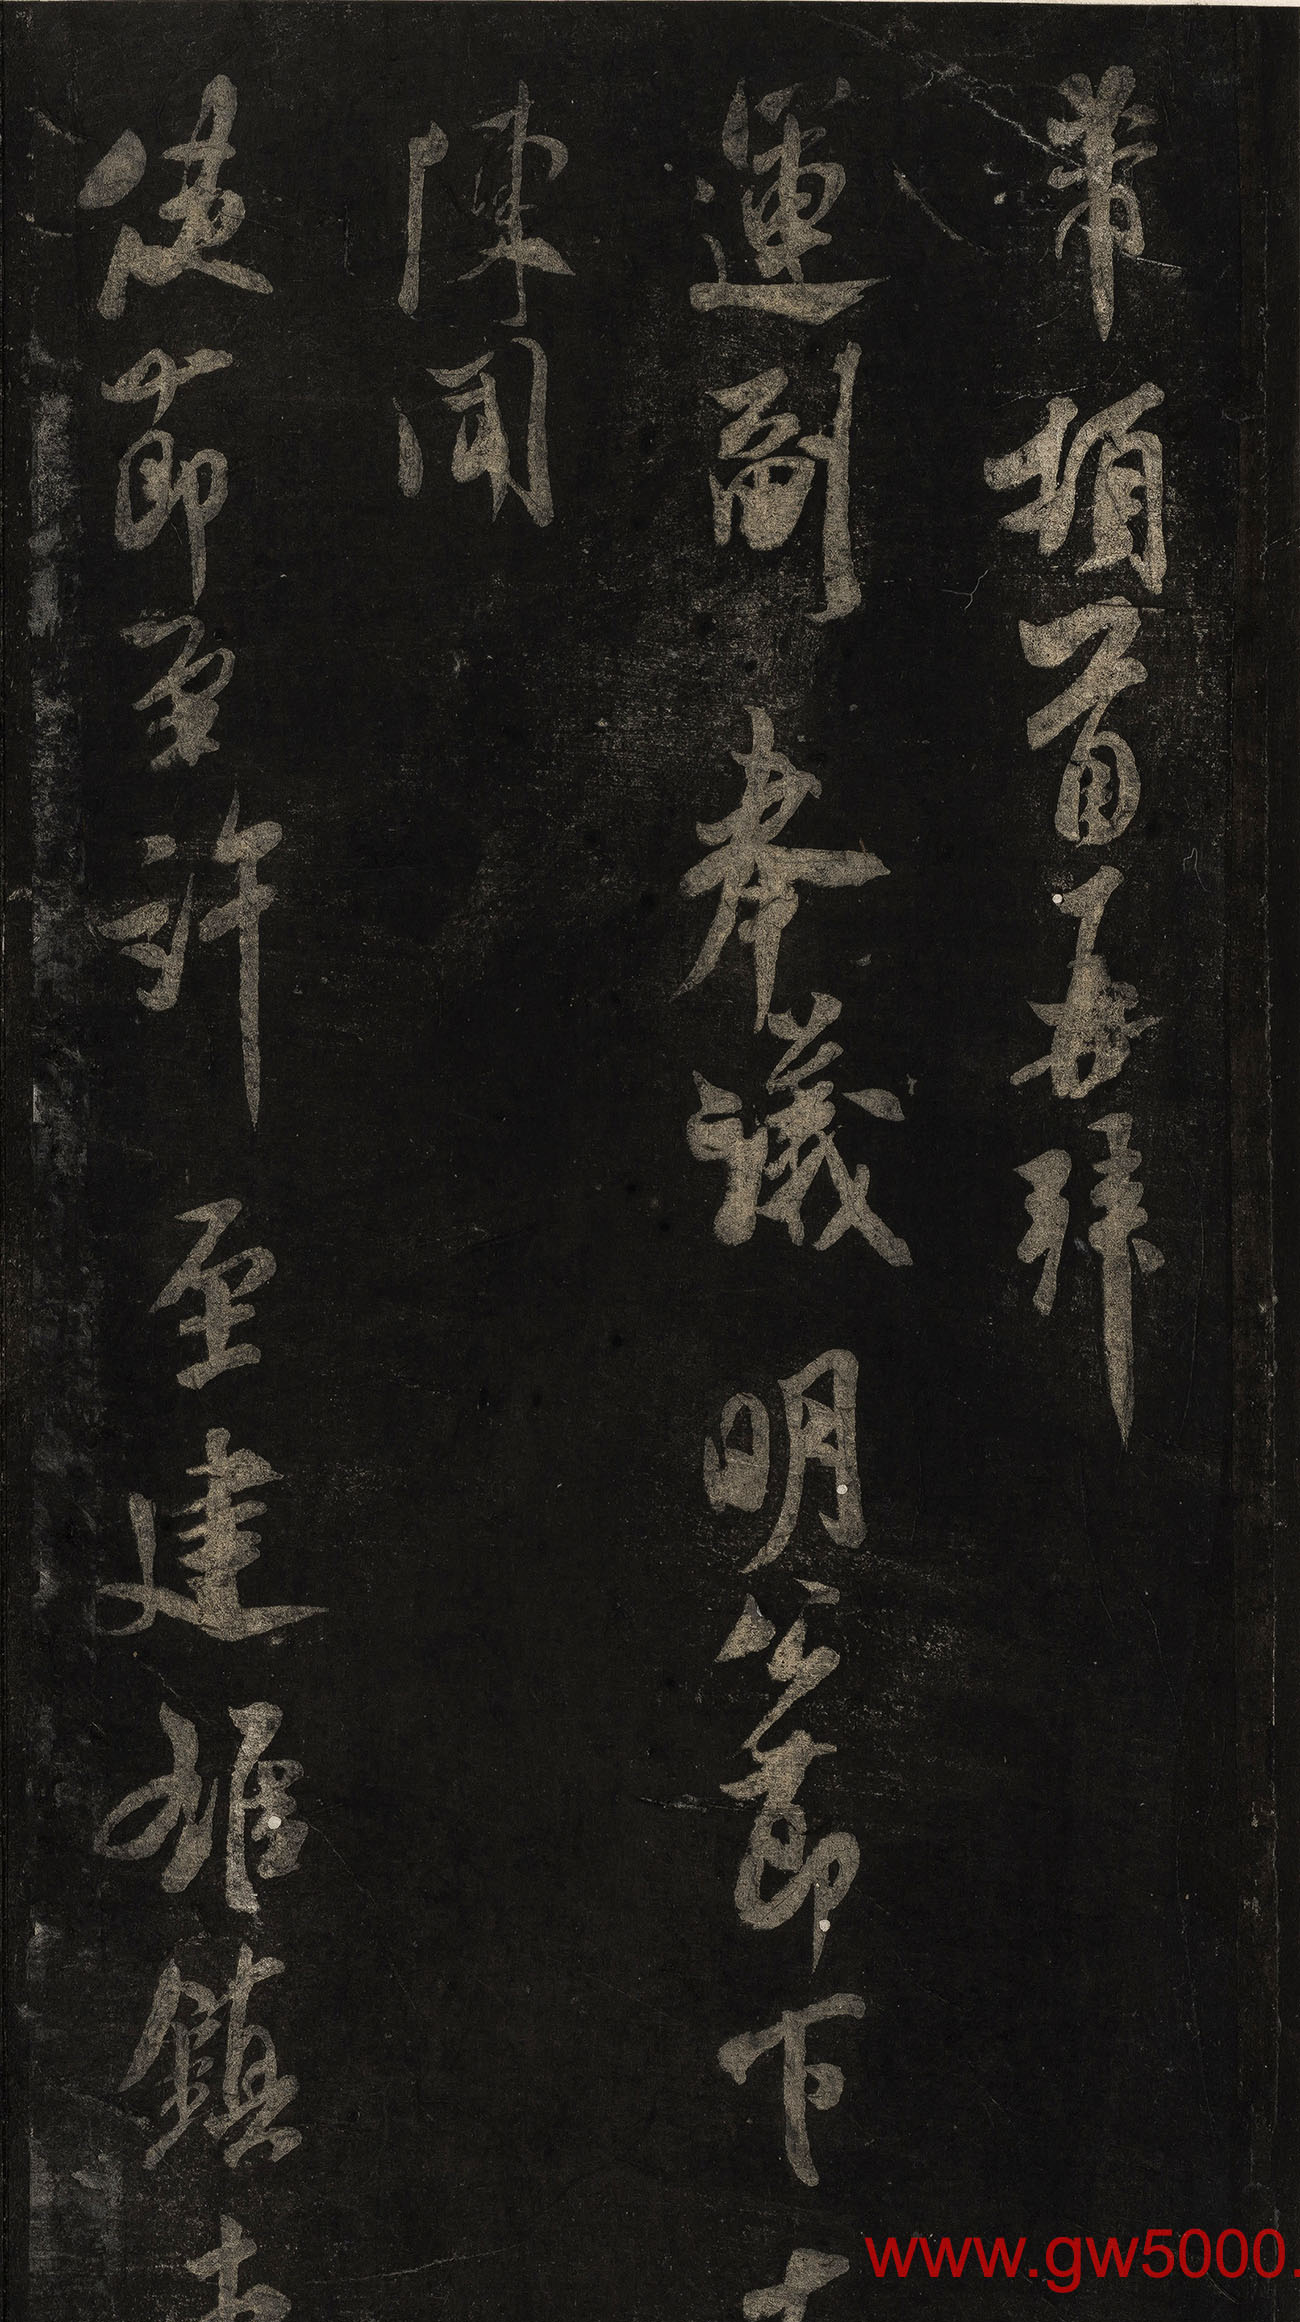 芾頓首再拜
運副奉議明公節下
陳聞
使節至許至建雄鎮
www.gw5000.